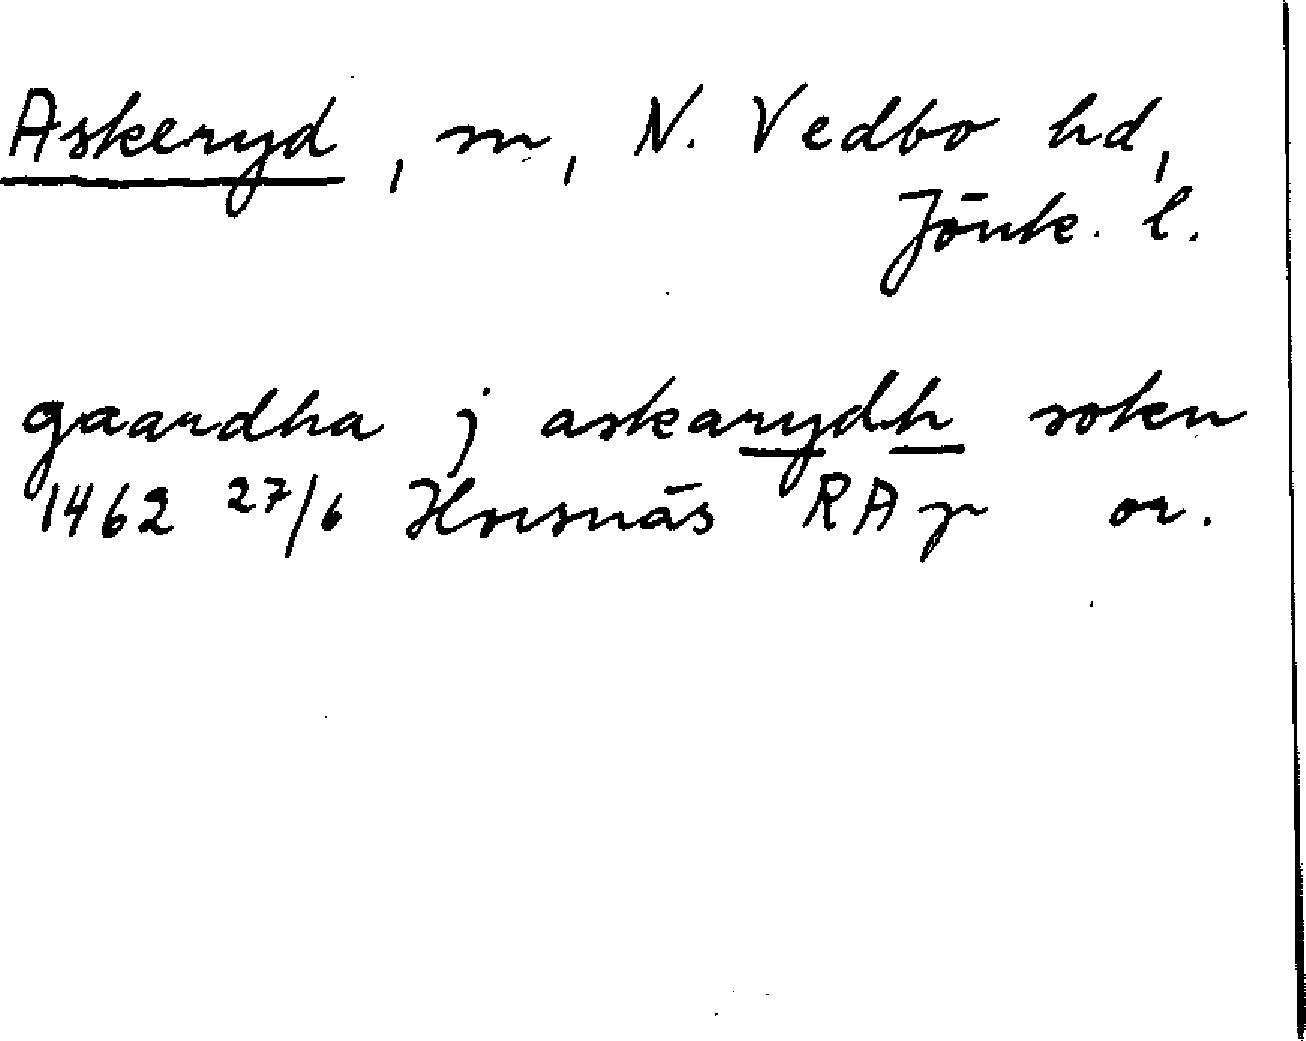 Askeryd, sn, N. Vedbo hd,
Jönk. l.
gaardha j askarydh sokn
1462 27/6 Hovsnäs RAp or.